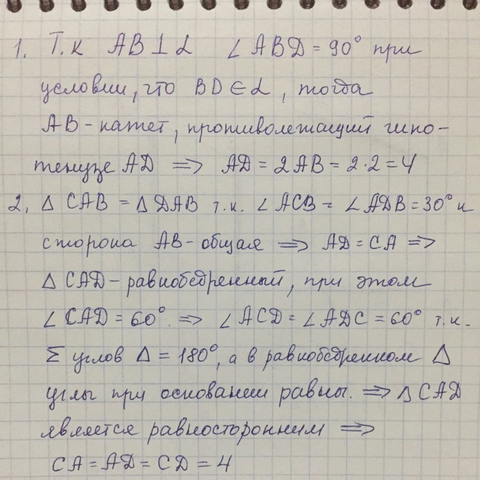 1. Т.к АВ⊥α ∠ABD = 90° при
условии, что BD∈α, тогда
АВ-катет, противолежащий гипо-
тенузе AD ⇒ AD = 2AB = 2·2 = 4
2, △ CAB = △ DAB т.к. ∠ACB = ∠ADB = 30° и
сторона AB-общая ⇒ AD = CA ⇒
△ CAD-равнобедренный, при этом
∠CAD = 60°. ⇒ ∠ACD = ∠ADC = 60° т.к.
Σ углов △ = 180°, а в равнобедренном △
углы при основании равны. ⇒ △ CAD
является равносторонним ⇒
CA = AD = CD = 4